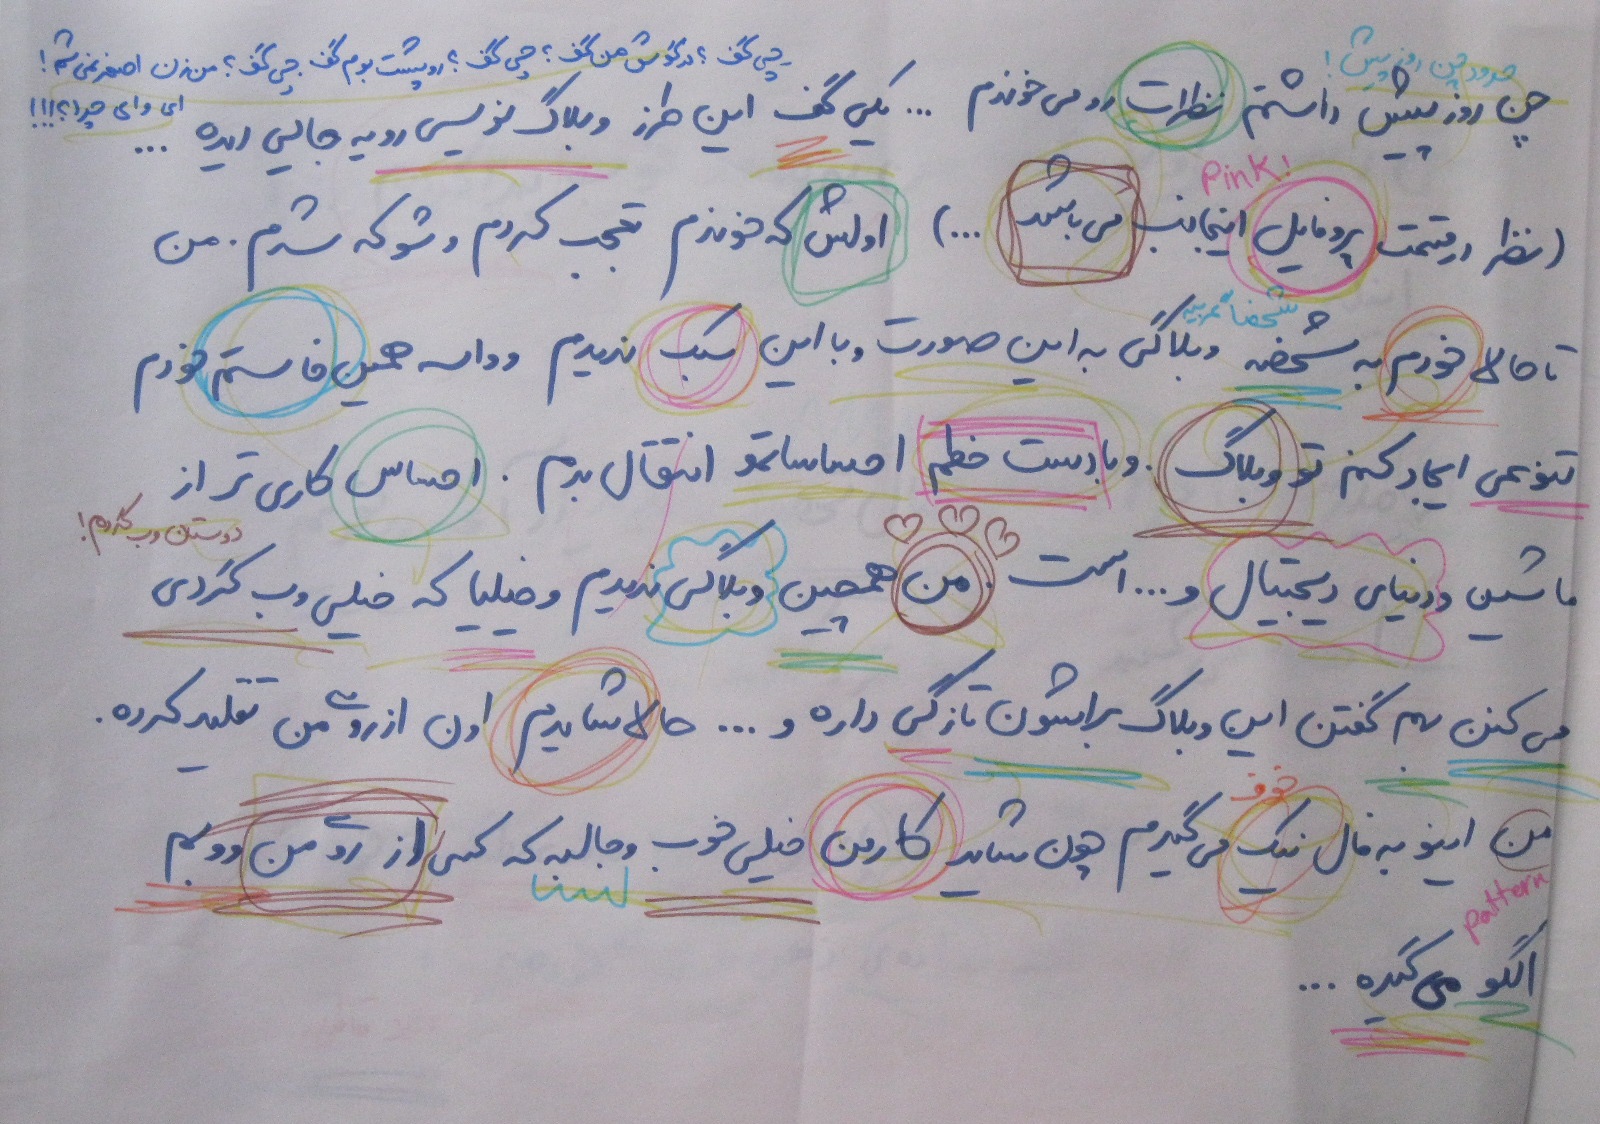 چی گف؟ در گوش من گف؟ چی گف؟ رو پشت بوم گف. چی گف؟ من زن اصغر نمی شم!
ای وای چرا؟!!!
حدود چن روز پیش!
چن روز پیش داشتم نظرات رو می خوندم ... یکی گف این طرز وبلاگ نویسی رو یه جالبی ایده ...
Pink!
(نظر در قسمت پروفایل اینجانب می باشد ...) اولش که خوندم تعجب کردم و شوکه شدم. من
شخصاً
تا حالا خودم به شخصه وبلاگی به این صورت و با این سبک ندیدم و واسه همین خاستم خودم
تنوعی ایجاد کنم تو وبلاگ. و با دست خطم احساساتمو انتقال بدم. احساس کاری تر از
دوستان وب گردم!
ماشین و دنیای دیجیتال و... است. من همچین وبلاگی ندیدم و خیلیا که خیلی وب گردی
می کنن بهم گفتن این وبلاگ براشون تازگی داره و ... حالا شایدم اون از روی من تقلید کرده.
من اینو به فال نیک می گیرم چون شاید کارمن خیلی خوب و جالبه که کسی از رو من و وبم
pattern
الگو می گیره ...